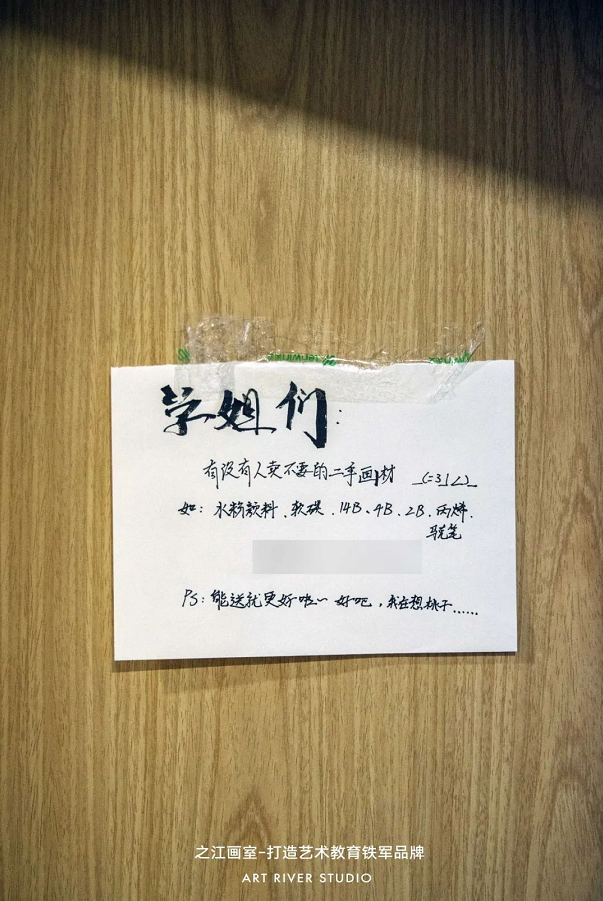 学姐们:
有没有人卖不要的二手画材 _(:з」∠)_
如: 水粉颜料、软碳、14B、4B、2B、丙烯、
马克笔
PS: 能送就更好啦~ 好吧,我在想桃子......
之江画室-打造艺术教育铁军品牌
ART RIVER STUDIO